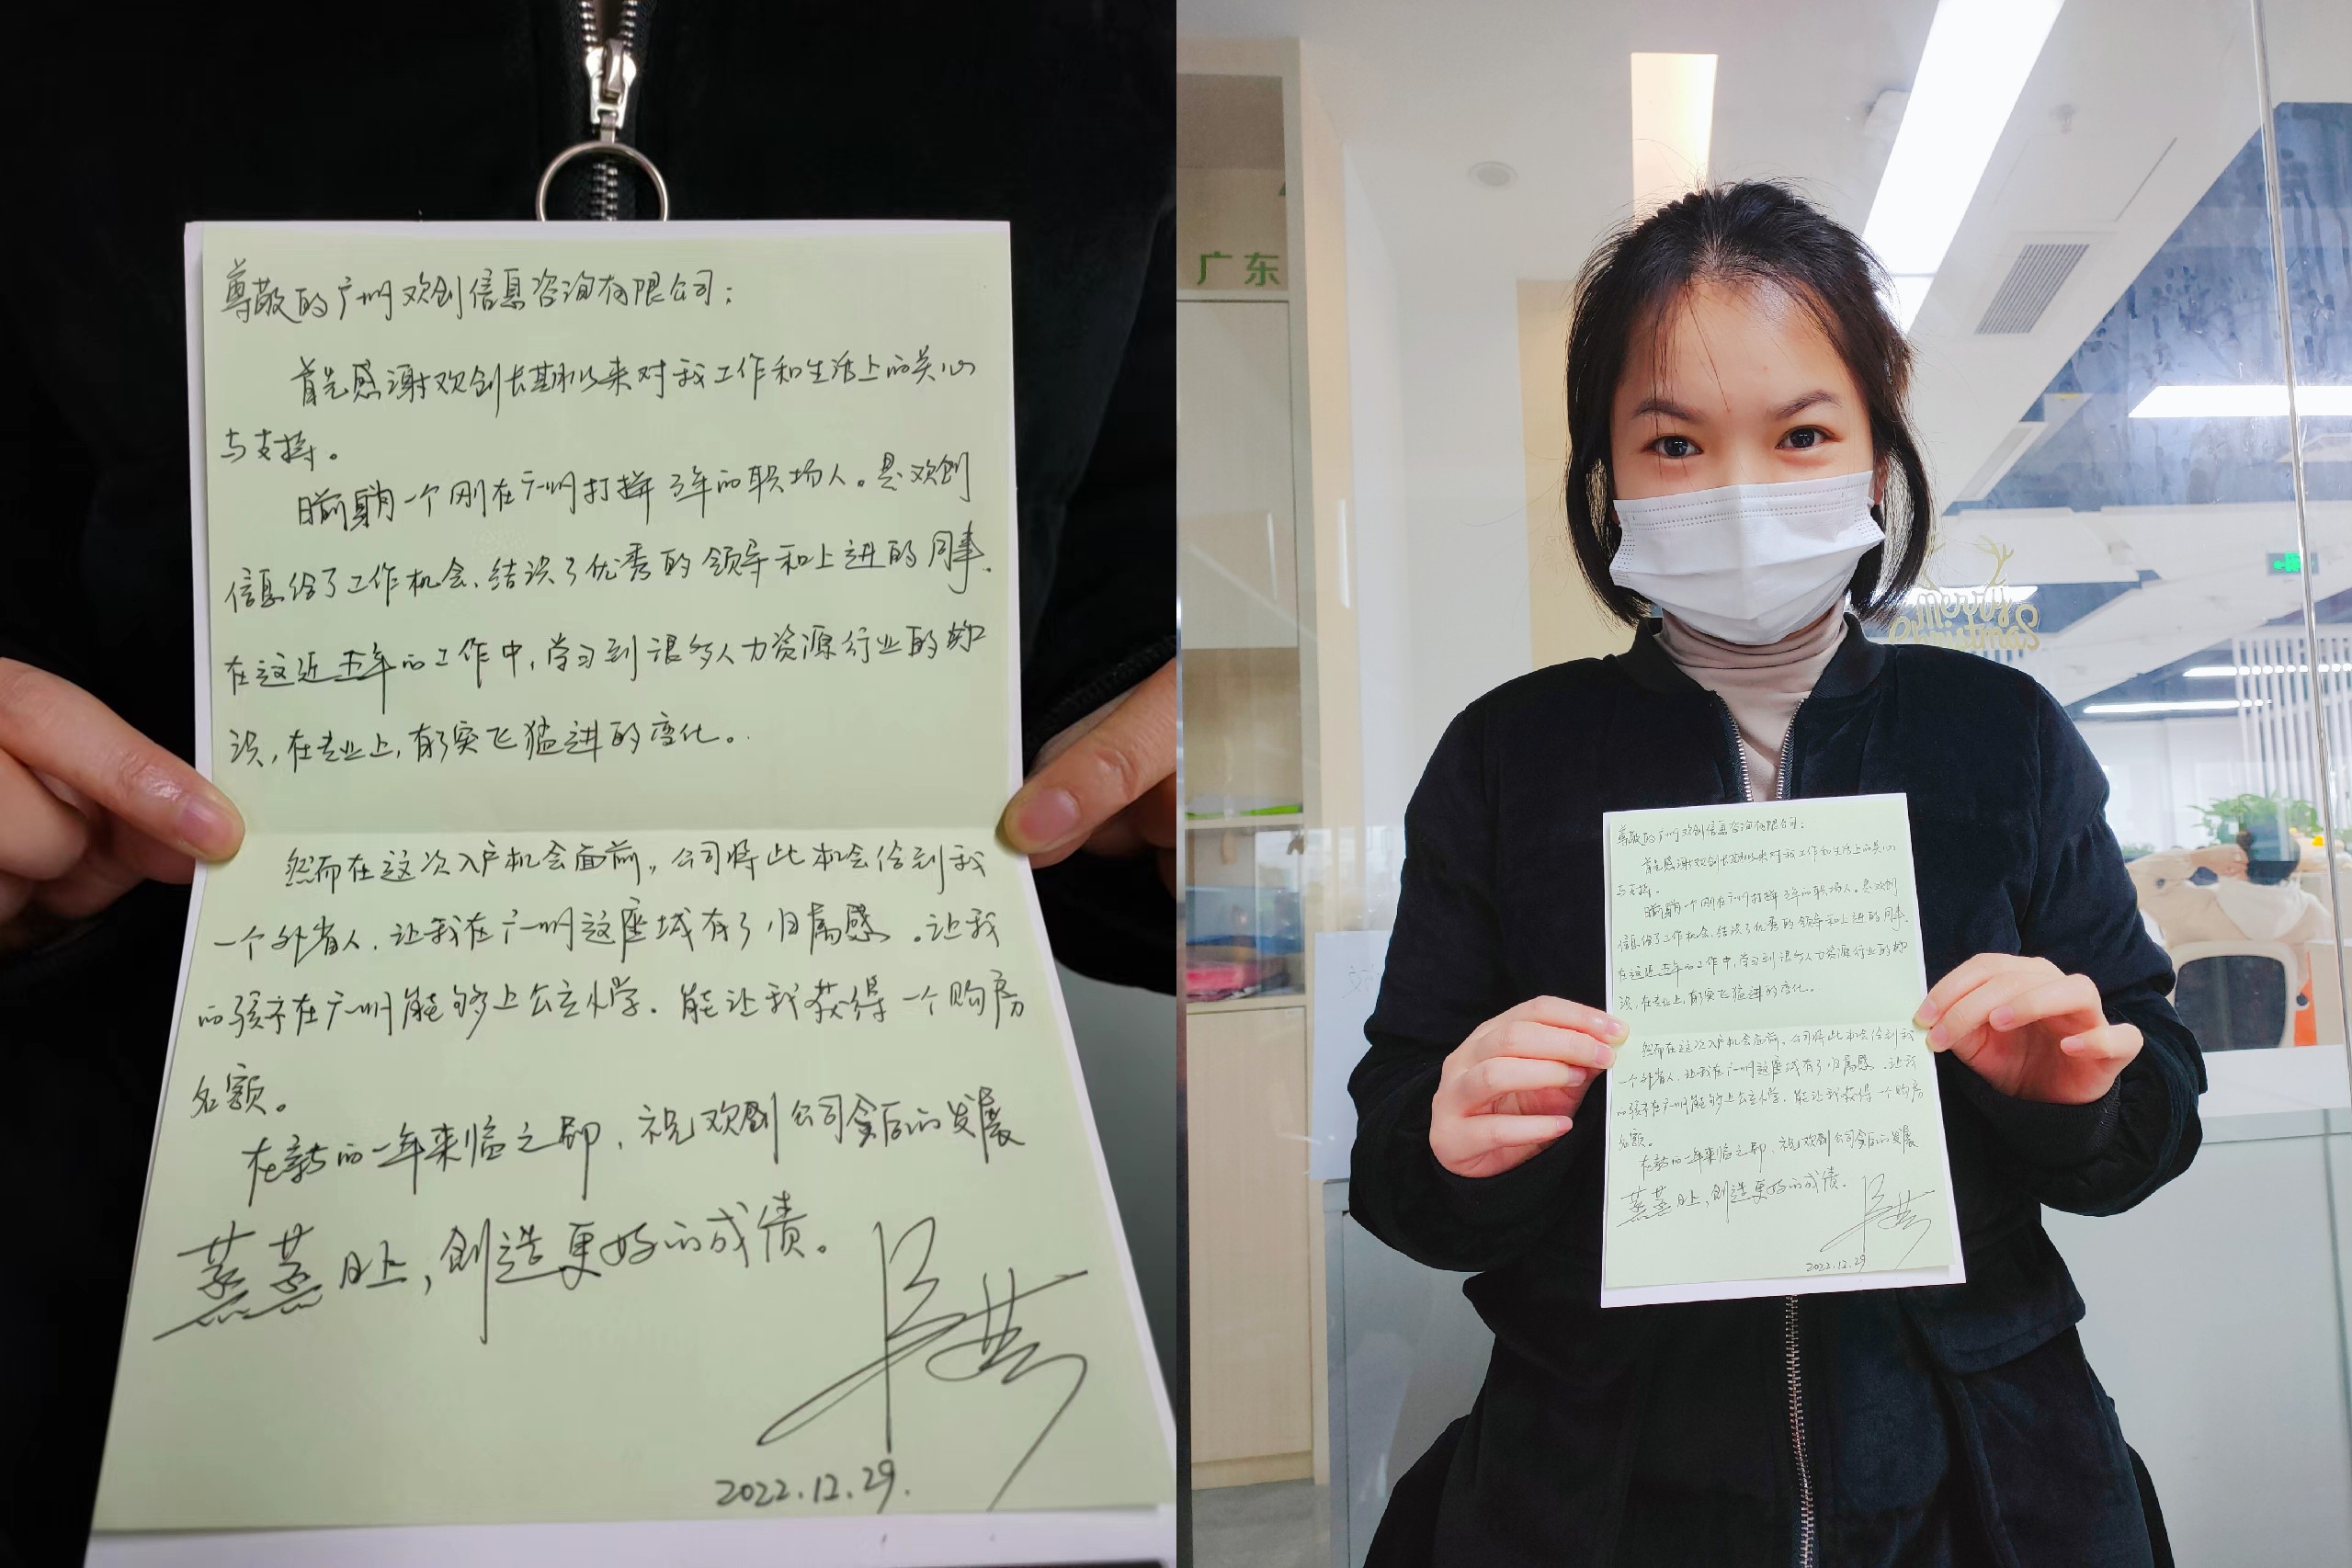 尊敬的广州欢创信息咨询有限公司：
首先感谢欢创长期以来对我工作和生活上的关心
与支持。
一个刚在广州打拼3年的职场人。是欢创
信息给了工作机会、结识了优秀的领导和上进的同事、
在这近五年的工作中，学习到很多人力资源行业的知
识，在专业上，有了突飞猛进的变化。
然而在这次入户机会面前，公司将此机会给到我
一个外省人，让我在广州这座城有了归属感。让我
的孩子在广州能够上公立小学。能让我获得一个购房
名额。
在新的一年来临之即，祝欢创公司今后的发展
蒸蒸日上，创造更好的成绩。
2022.12.29.
广东
Merry
Christmas